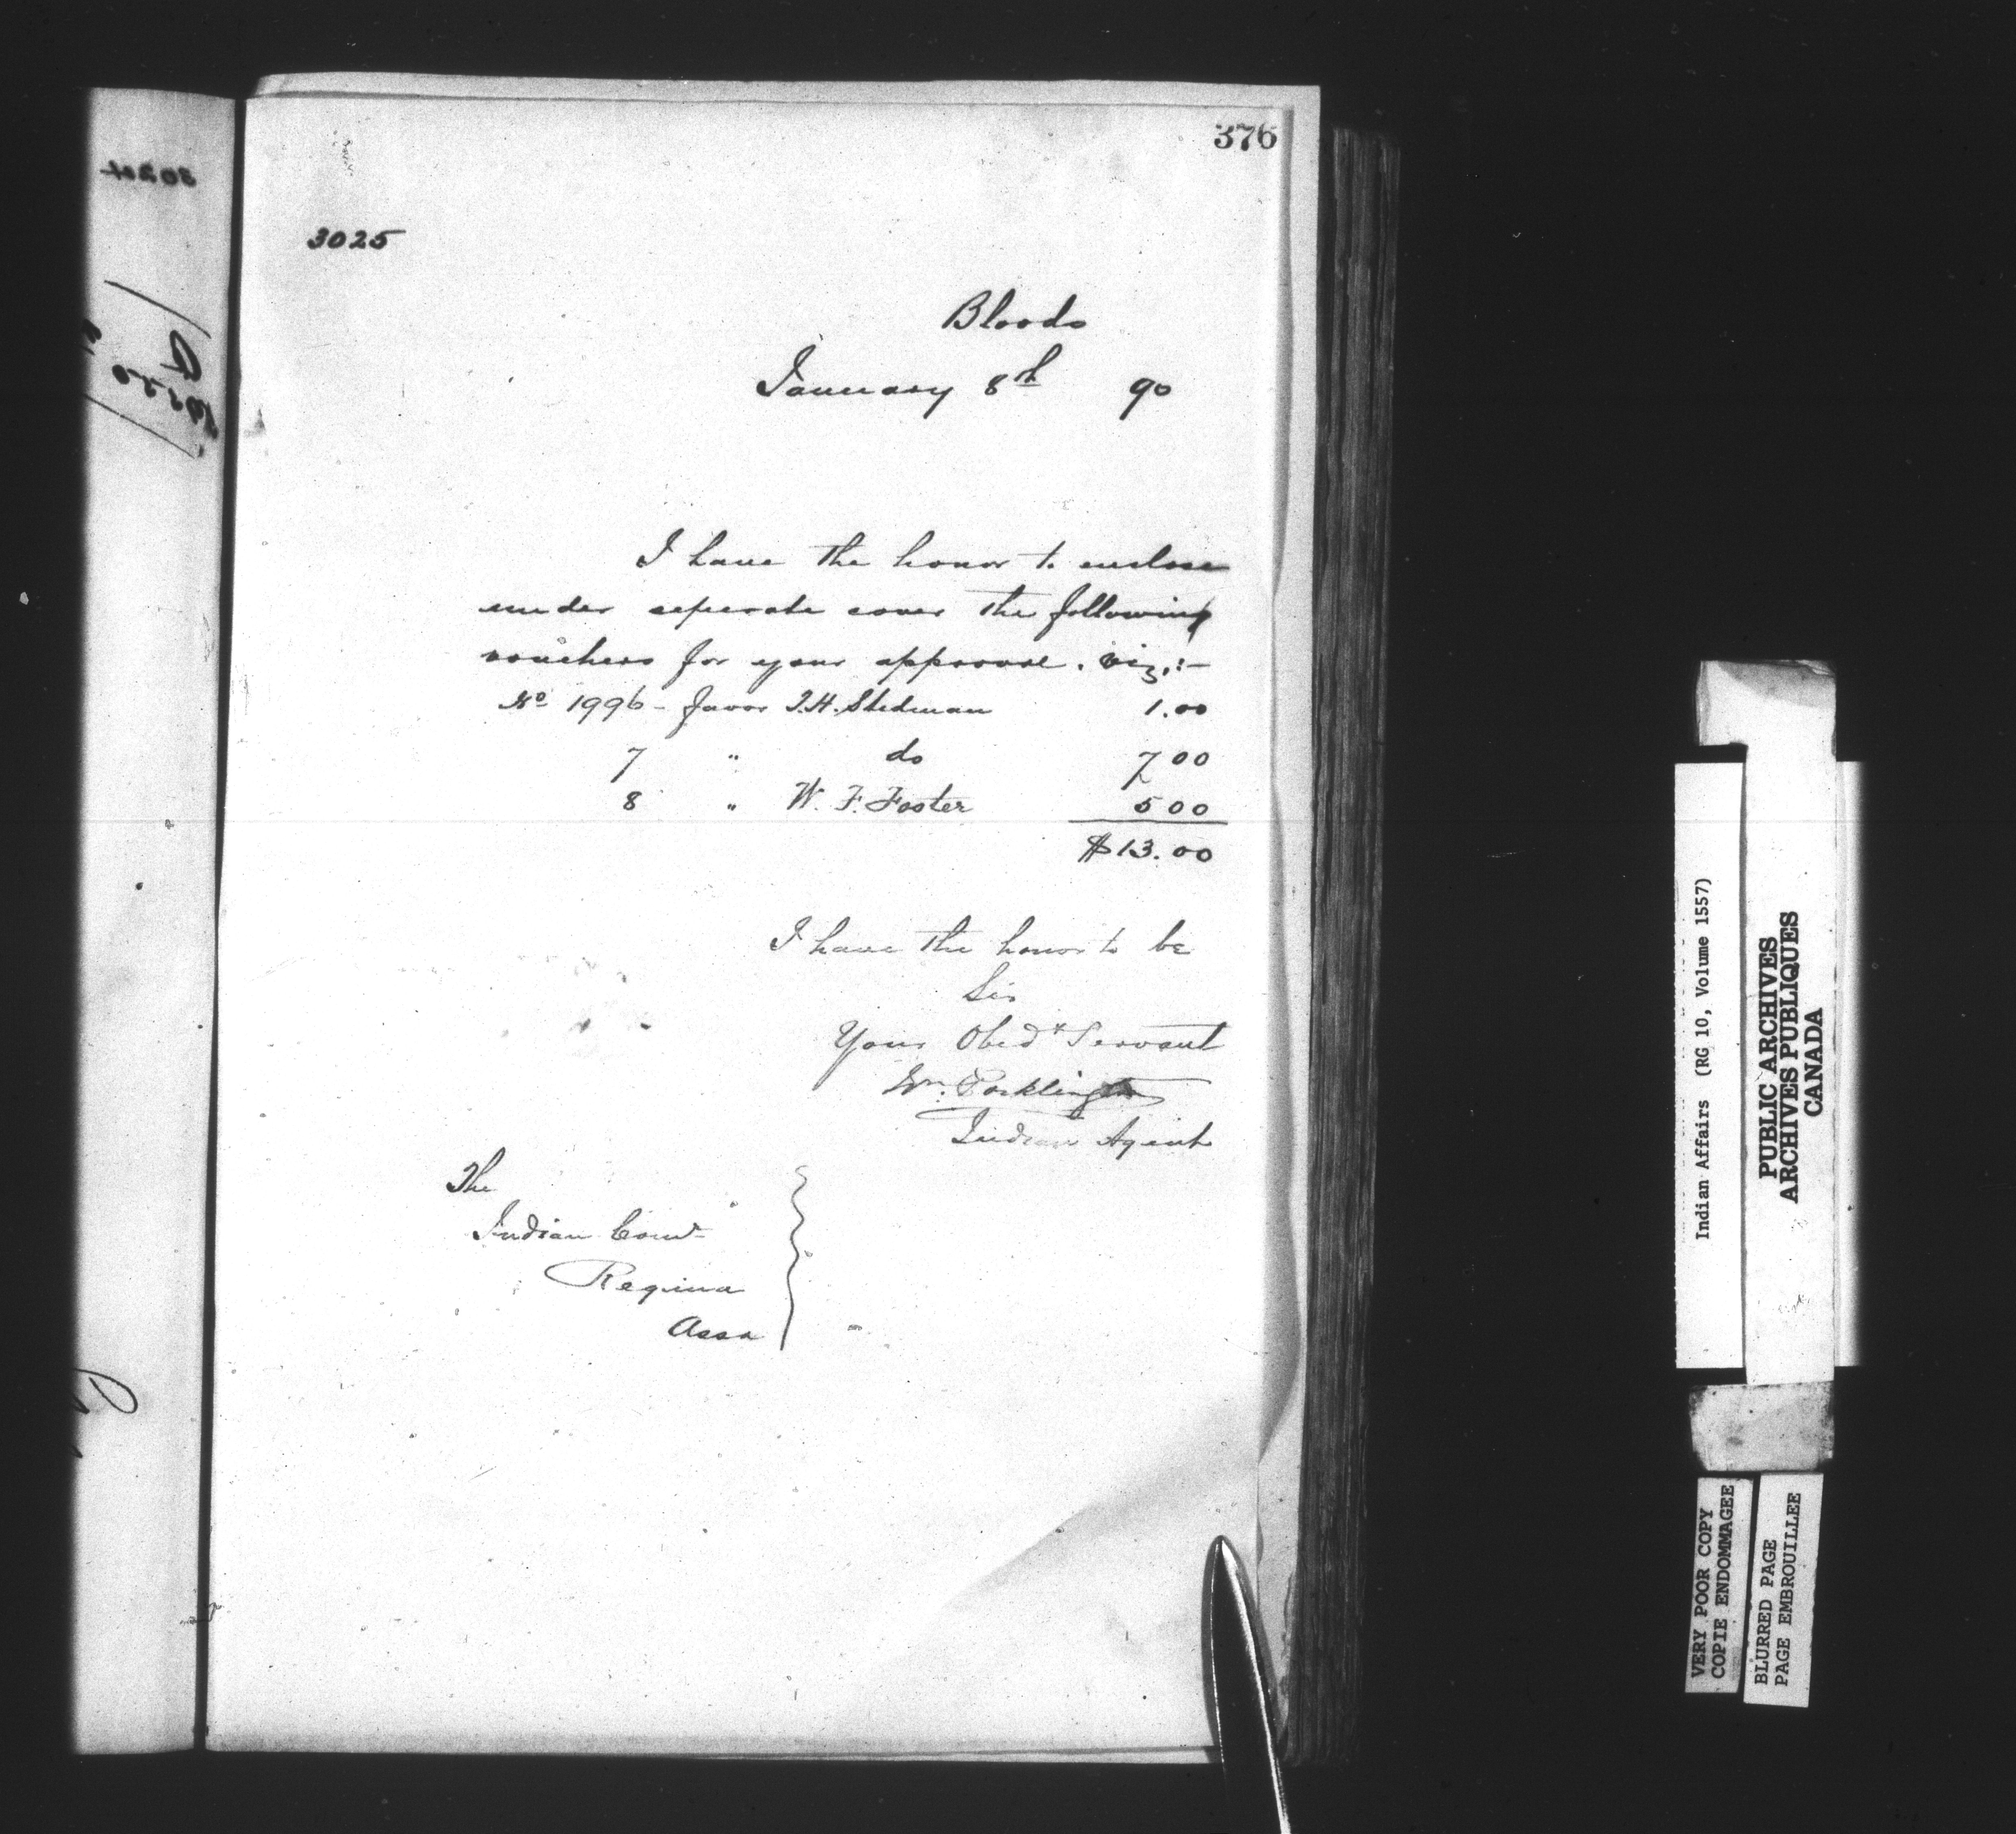 376
3025
Bloods
January 8th 90
I have the honor to enclose
under seperate cover the following
vouchers for your approval. viz.:-
No 1996 - favor J.H. Stedman 1.00
7 " do 7 00
8 " W. F. Foster 5 00
$13.00
I have the honor to be
Sir
Your Obedt Servant
Wm. Pocklington
Indian Agent
The
Indian Comr
Regina
Assa
Indian Affairs (RG 10, Volume 1557)
PUBLIC ARCHIVES
ARCHIVES PUBLIQUES
CANADA
VERY POOR COPY
COPIE ENDOMMAGEE
BLURRED PAGE
PAGE EMBROUILLEE